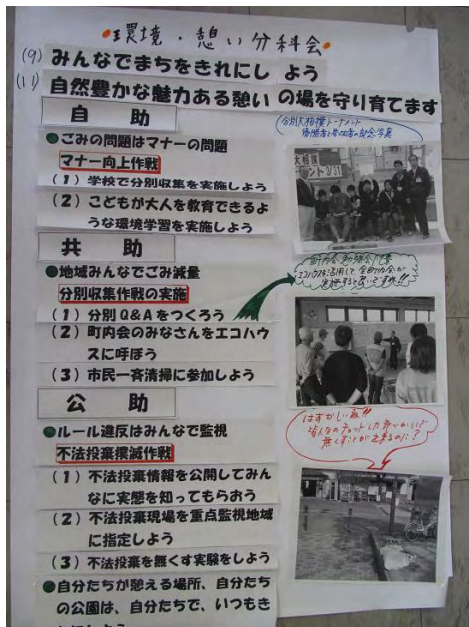 環境・憩い分科会
(9) みんなでまちをきれいにしよう
(11) 自然豊かな魅力ある憩いの場を守り育てます
自助
●ごみの問題はマナーの問題
マナー向上作戦
(1) 学校で分別収集を実施しよう
(2) こどもが大人を教育できるよ
うな環境学習を実施しよう
共助
●地域みんなでごみ減量
分別収集作戦の実施
(1) 分別Q&Aをつくろう
(2) 町内会のみなさんをエコハウ
スに呼ぼう
(3) 市民一斉清掃に参加しよう
公助
●ルール違反はみんなで監視
不法投棄撲滅作戦
(1) 不法投棄情報を公開してみん
なに実態を知ってもらおう
(2) 不法投棄現場を重点監視地域
に指定しよう
(3) 不法投棄を無くす実験をしよう
●自分たちが憩える場所、自分たち
の公園は、自分たちで、いつもき
分別大相撲トーナメント
優勝者と参加者の記念写真
大相撲
町内会 勉強会風景
はずかしい数!!
無くすことが出来るのに?